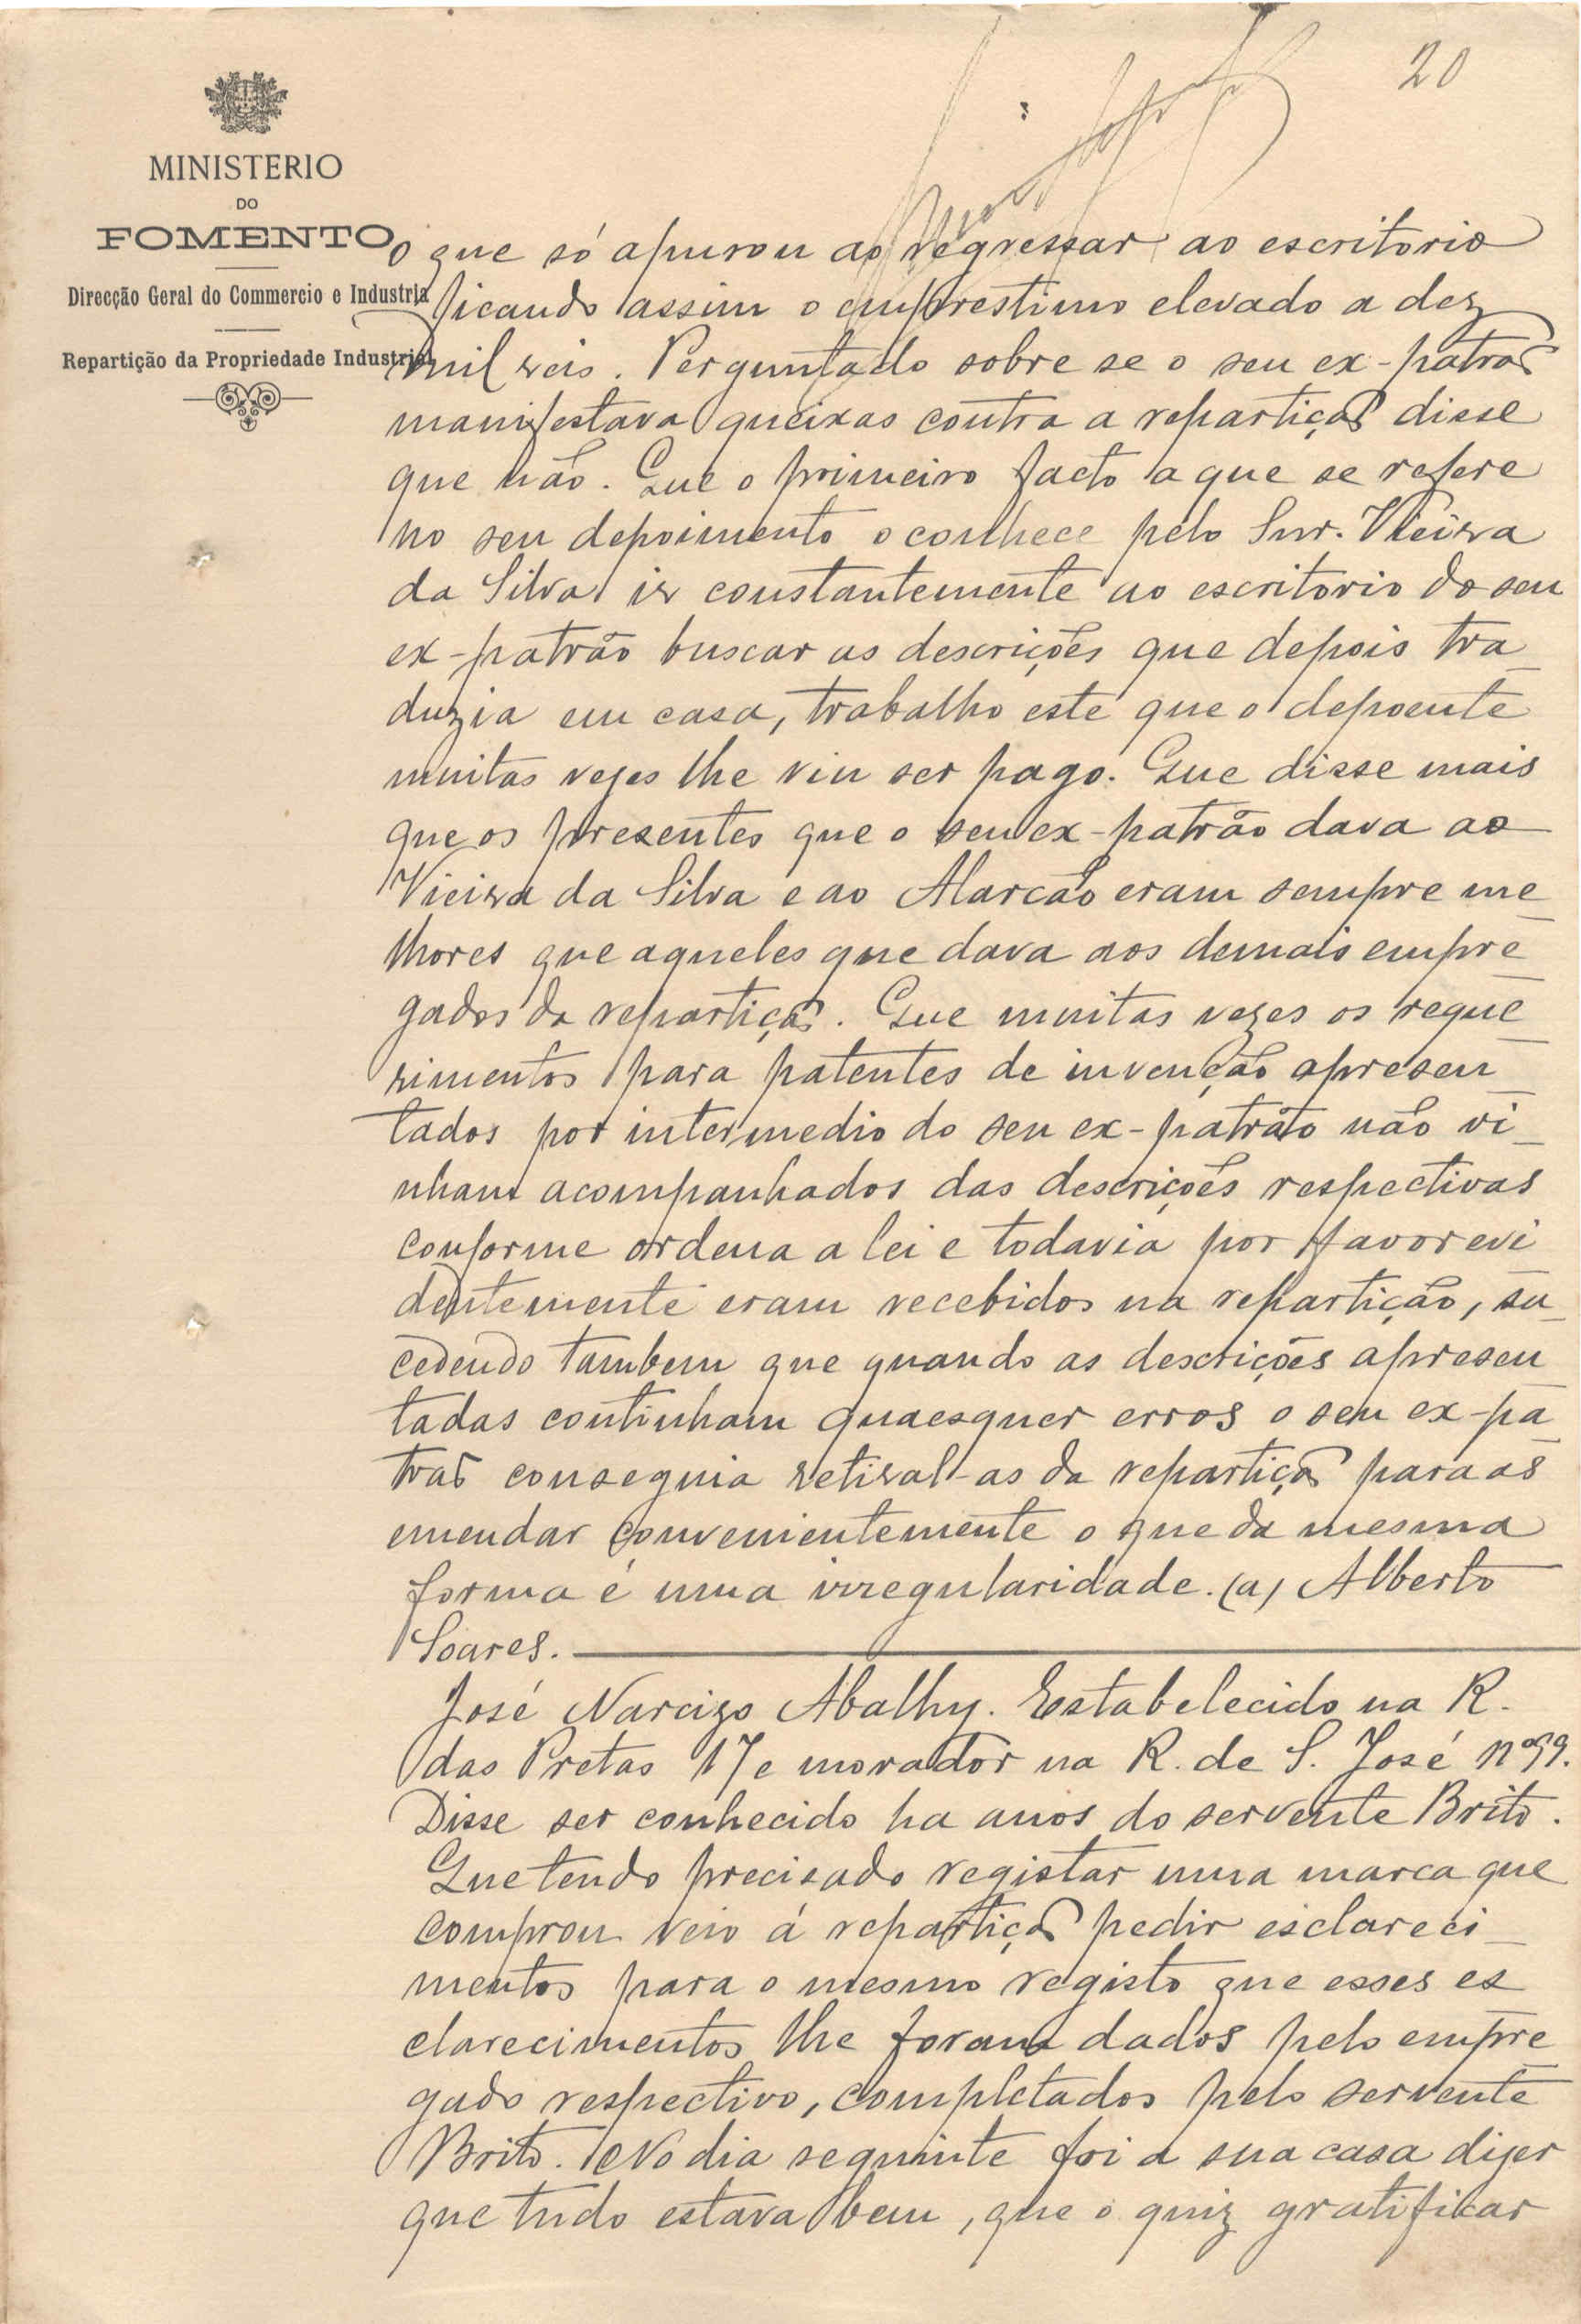 20
MINISTERIO
DO
FOMENTO
Direcção Geral do Commercio e Industria
Repartição da Propriedade Industrial
o que só apurou ao regressar ao escritorio
ficando assim o emprestimo elevado a dez
mil reis. Perguntado sobre se o seu ex-patrão
manifestava queixas contra a repartição disse
que não. Que o primeiro facto a que se refere
no seu depoimento o conhece pelo Snr. Vieira
da Silva ir constantemente ao escritorio do seu
ex-patrão buscar as descrições que depois tra
duzia em casa, trabalho este que o depoente
muitas vezes lhe viu ser pago. Que disse mais
que os presentes que o seu ex-patrão dava ao
Vieira da Silva e ao Alarcão eram sempre me
lhores que aqueles que dava aos demais empre
gados da repartição. Que muitas vezes os reque
rimentos para patentes de invenção apresen
tados por intermedio do seu ex-patrão não vi
nham acompanhados das descrições respectivas
conforme ordena a lei e todavia por favor evi
dentemente eram recebidos na repartição, su
cedendo tambem que quando as descrições apresen
tadas continham quaesquer erros o seu ex-pa
trão conseguia retiral-as da repartição para as
emendar convenientemente o que da mesma
forma é uma irregularidade. (a) Alberto
Soares.
José Narcizo Abalhy. Estabelecido na R.
das Pretas 17 e morador na R. de S. José nº 99.
Disse ser conhecido ha anos do servente Brito.
Que tendo precisado registar uma marca que
comprou veio á repartição pedir esclareci
mentos para o mesmo registo que esses es
clarecimentos lhe foram dados pelo empre
gado respectivo, completados pelo servente
Brito. No dia seguinte foi a sua casa dizer
que tudo estava bem, que o quiz gratificar